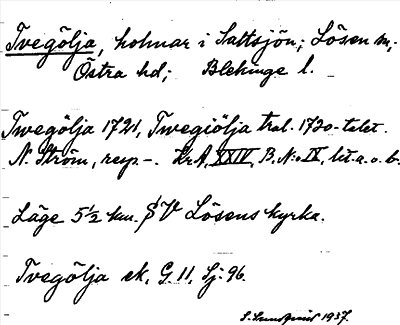 Tvegölja, holmar i Saltsjön; Lösen sn,
Östra hd; Blekinge l.
Twegölja 1721, Twegiölja tral. 1730-talet.
N. Ström, resp. –. KrA, XXIV, B. N:o IV, lit. a. o. b.
Läge 5½ km. SV Lösens kyrka.
Tvegölja ek, G. 11, Sj: 96.
S. Lundqvist 1937.